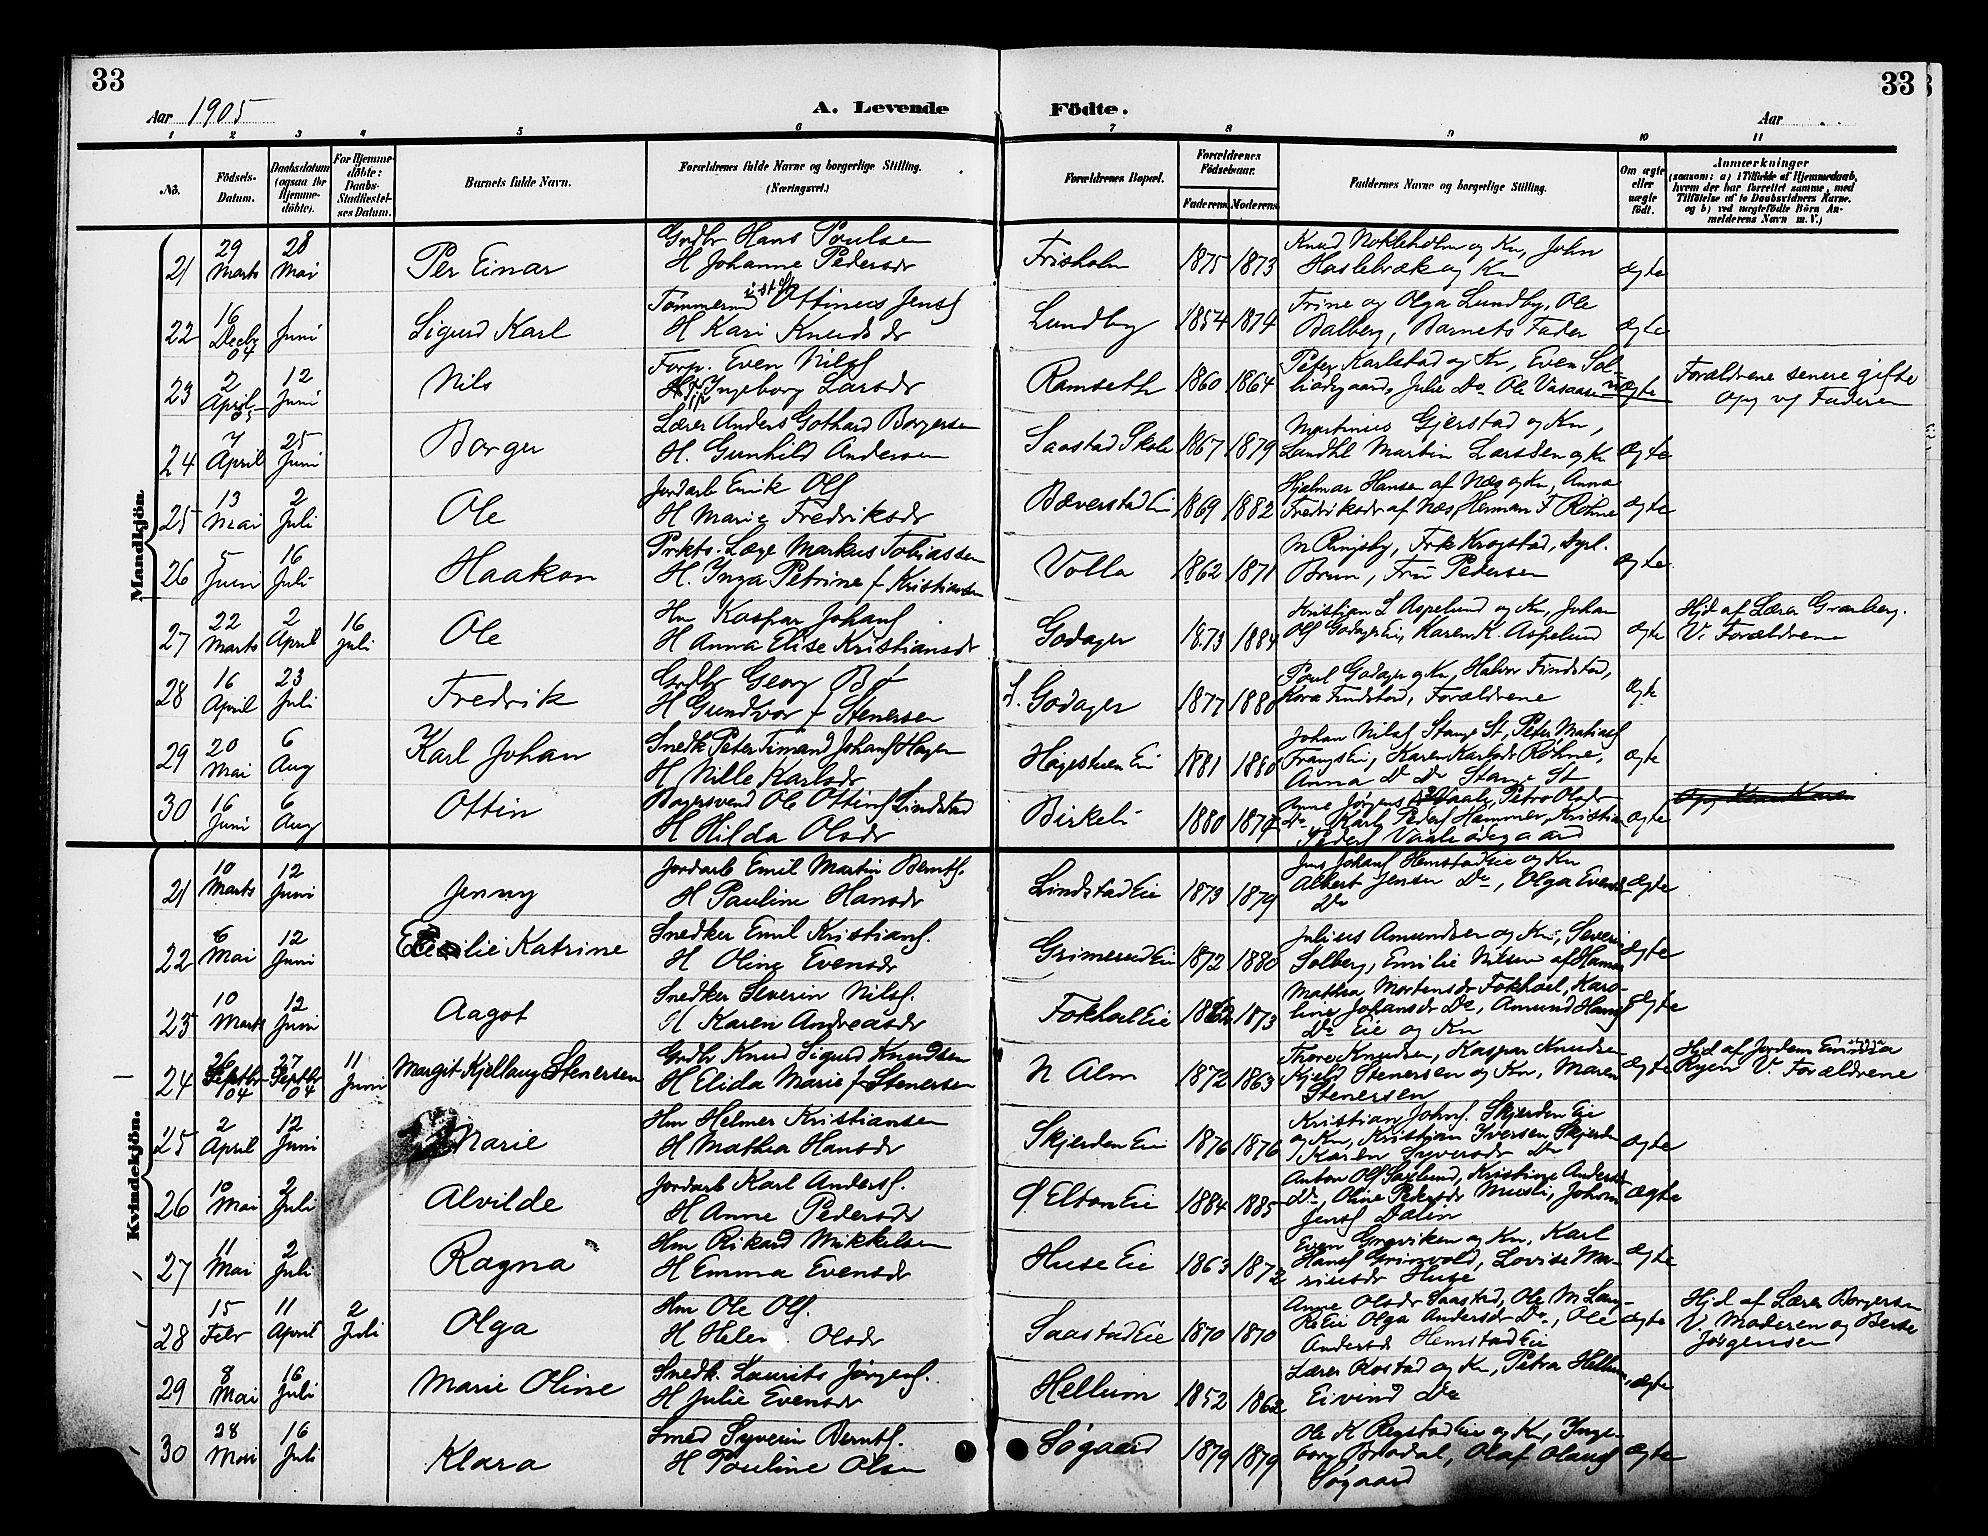 33
33
Aar 1905
A. Levende
Födte.
Aar
1 2 3 4 5 6 7 8 9 10 11
No.
Födsels-Datum.
Daabsdatum (ogsaa for Hjemme-döbte).
For Hjemme-döbte: Daabs-Stadfæstel-ses Datum.
Barnets fulde Navn.
Forældrenes fulde Navne og borgerlige Stilling. (Næringsvei.)
Forældrenes Bopæl.
Forældrenes Födselsaar.
Faderens Moderens
Faddernes Navne og borgerlige Stilling.
Om ægte eller uægte födt.
Anmærkninger
(saasom: a) i Tilfælde af Hjemmedaab, hvem der har forrettet samme, med Tilföielse af to Daabsvidners Navne. og b) ved uægtefödte Börn An-melderens Navn m. V.)
Mandkjön.
21 29 Marts 28 Mai Per Einar Grdbr Hans Poulsen
H Johanne Pedersdr Frisholm 1875 1873 Knud Nokleholm og Kn, John
Haslebræk og Kn ægte
22 16 Decbr 04 1 Juni Sigurd Karl Tømmermd Ottinus Jensf
H Kari Knudsdr Lundby 1854 1874 Trine og Olga Lundby, Ole
Balberg, Barnets Fader ægte
23 2 April 05 12 Juni Nils Forp. Even Nilsf
Ingeborg Larsdr Ramseth 1860 1864 Peter Karlstad og Kn, Even Sol-
Julie Do Ole uægte Forældrene senere gifte
Opg v/ Faderen
24 7 April 25 Juni Borger Lærer Anders Gothard Borgersen
H. Gunhild Andersen Saastad Skole 1867 1879 Martinius Gjerstad og Kn,
Landhl Martin Larsen og Kn ægte
25 13 Mai 2 Juli Ole Jordarb Emik Olsf
H Marie Fredriksdr Bæverstad Ei 1869 1882 Hjalmar Hansen af Næs og Kn, Anna
Fredriksdr af Næs, Herman F Røhne ægte
26 5 Juni 16 Juli Haakon Prkts. Læge Markus Tobiassen
H. Inga Petrine f Kristiansen Volla 1862 1871 M Ringsby, Frk Krogstad, Dyrl.
Brun, Fru Pedersen ægte
27 22 Marts 2 April 16 Juli Ole Hm Kaspar Johansf
H Anna Elise Kristiansdr Godager 1873 1884 Kristian L Aspelund og Kn, Johan
Olsf Godager Ei, Karen K. Aspelund ægte Hjd af Lærer Granberg.
V. Forældrene
28 16 April 23 Juli Fredrik Grdbr Georg Bø
H Gundvor f Stenersen L. Godager 1877 1880 Poul Godager og Kn, Halvor Findstad,
Kora Findstad, Forældrene ægte
29 20 Mai 6 Aug Karl Johan Snedk Peter Timand Johansf Hagen
H Nille Karlsdr Hagestuen Ei 1881 1880 Johan Nilsf Stange St, Peter Matiasf
Frang Ei, Karen Karlsdr Røhne,
Anna Do Do Stange St ægte
30 16 Juni 6 Aug Ottin Bagersvend Ole Ottinsf Lindstad
H Hilda Olsdr Birkeli 1880 1874 Anne Jørgens Vaale, Petra Olsdr
Do, Karl Pedersf Hammer, Kristian
Pedersf Vaaleødegaard ægte
Kvindekjön.
21 10 Marts 12 Juni Jenny Jordarb Emil Martin Berntsf.
H Pauline Hansdr Lindstad Eie 1873 1879 Jens Johansf Hemstad Eie og Kn
Albert Jensen Do, Olga Evensdr
Do ægte
22 6 Mai 12 Juni Katrine Snedker Emil Kristiansf.
H Oline Evensdr Grimerud Eie 1872 1880 Julius Amundsen og Kn, Severin
Solberg, Emilie Nilsen af Hamar ægte
23 10 Marts 12 Juni Aagot Snedker Severin Nilsf.
H Karen Andreasdr Fokhoel Eie 1873 Mathea Mortensdr Fokhoel, Karo-
line Johansdr Do, Amund Hansf
Do Eie og Kn ægte
24 26 Septbr 04 27 Septbr 04 11 Juni Margit Kjellaug Stenersen Grdbr Knud Sigurd Knudsen
H Elida Marie f Stenersen N Alm 1872 1863 Thore Knudsen, Kaspar Knudsen
Kjeld Stenersen og Kn, Maren
Stenersen ægte Hjd af Jordem
Ryen V Forældrene
25 2 April 12 Juni Marie Hm Helmer Kristiansen
H Mathea Hansdr Skjerden Eie 1876 1876 Kristian Johnsf. Skjerden Eie
og Kn, Kristian Iversen Skjerden
Karen Syversdr Do ægte
26 10 Mai 2 Juli Alvilde Jordarb Karl Andersf.
H Anne Pedersdr Ø Elton Eie 1884 1885 Anton Olsf Saxlund, Kristiane Andersdr
Do, Oline Pedersdr Musli, Johan
Jensf Dælin ægte
27 11 Mai 2 Juli Ragna Hm Rikard Mikkelsen
H Emma Evensdr Huse Eie 1863 1872 Even Greviken og Kn, Karl
Hansf Grinvold, Lovise Ma-
riusdr Huse ægte
28 15 Febr 11 April 2 Juli Olga Hm Ole Olsf.
H Helen Olsdr Saastad Eie 1870 1870 Anne Olsdr Saastad, Ole M Lang-
Eie Olga Andersdr Do, Ole
Andersf Hemstad Eie ægte Hjd af Lærer Borgersen
V. Moderen og Berte
Jørgensen
29 8 Mai 16 Juli Marie Oline Snedk. Laurits Jørgensf.
H Julie Evensdr Hellum 1852 1862 Lærer Rostad og Kn, Petra Hellum,
Eivind Do ægte
30 28 Mai 16 Juli Klara Smed Syverin Berntsf.
H Pouline Olsen Søgaard 1879 1879 Ole K Ringstad Eie og Kn, Inge-
borg Brodal, Olaf Olausf
Søgaard ægte